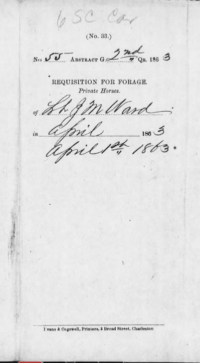 6 SC Cav
(No. 33.)
No: 55 ABSTRACT G 2nd Qr. 1863
REQUISITION FOR FORAGE.
Private Horses.
of Lt J M Ward
in April 1863
April 1st 1863.
Evans & Cogswell, Printers, 3 Broad Street, Charleston